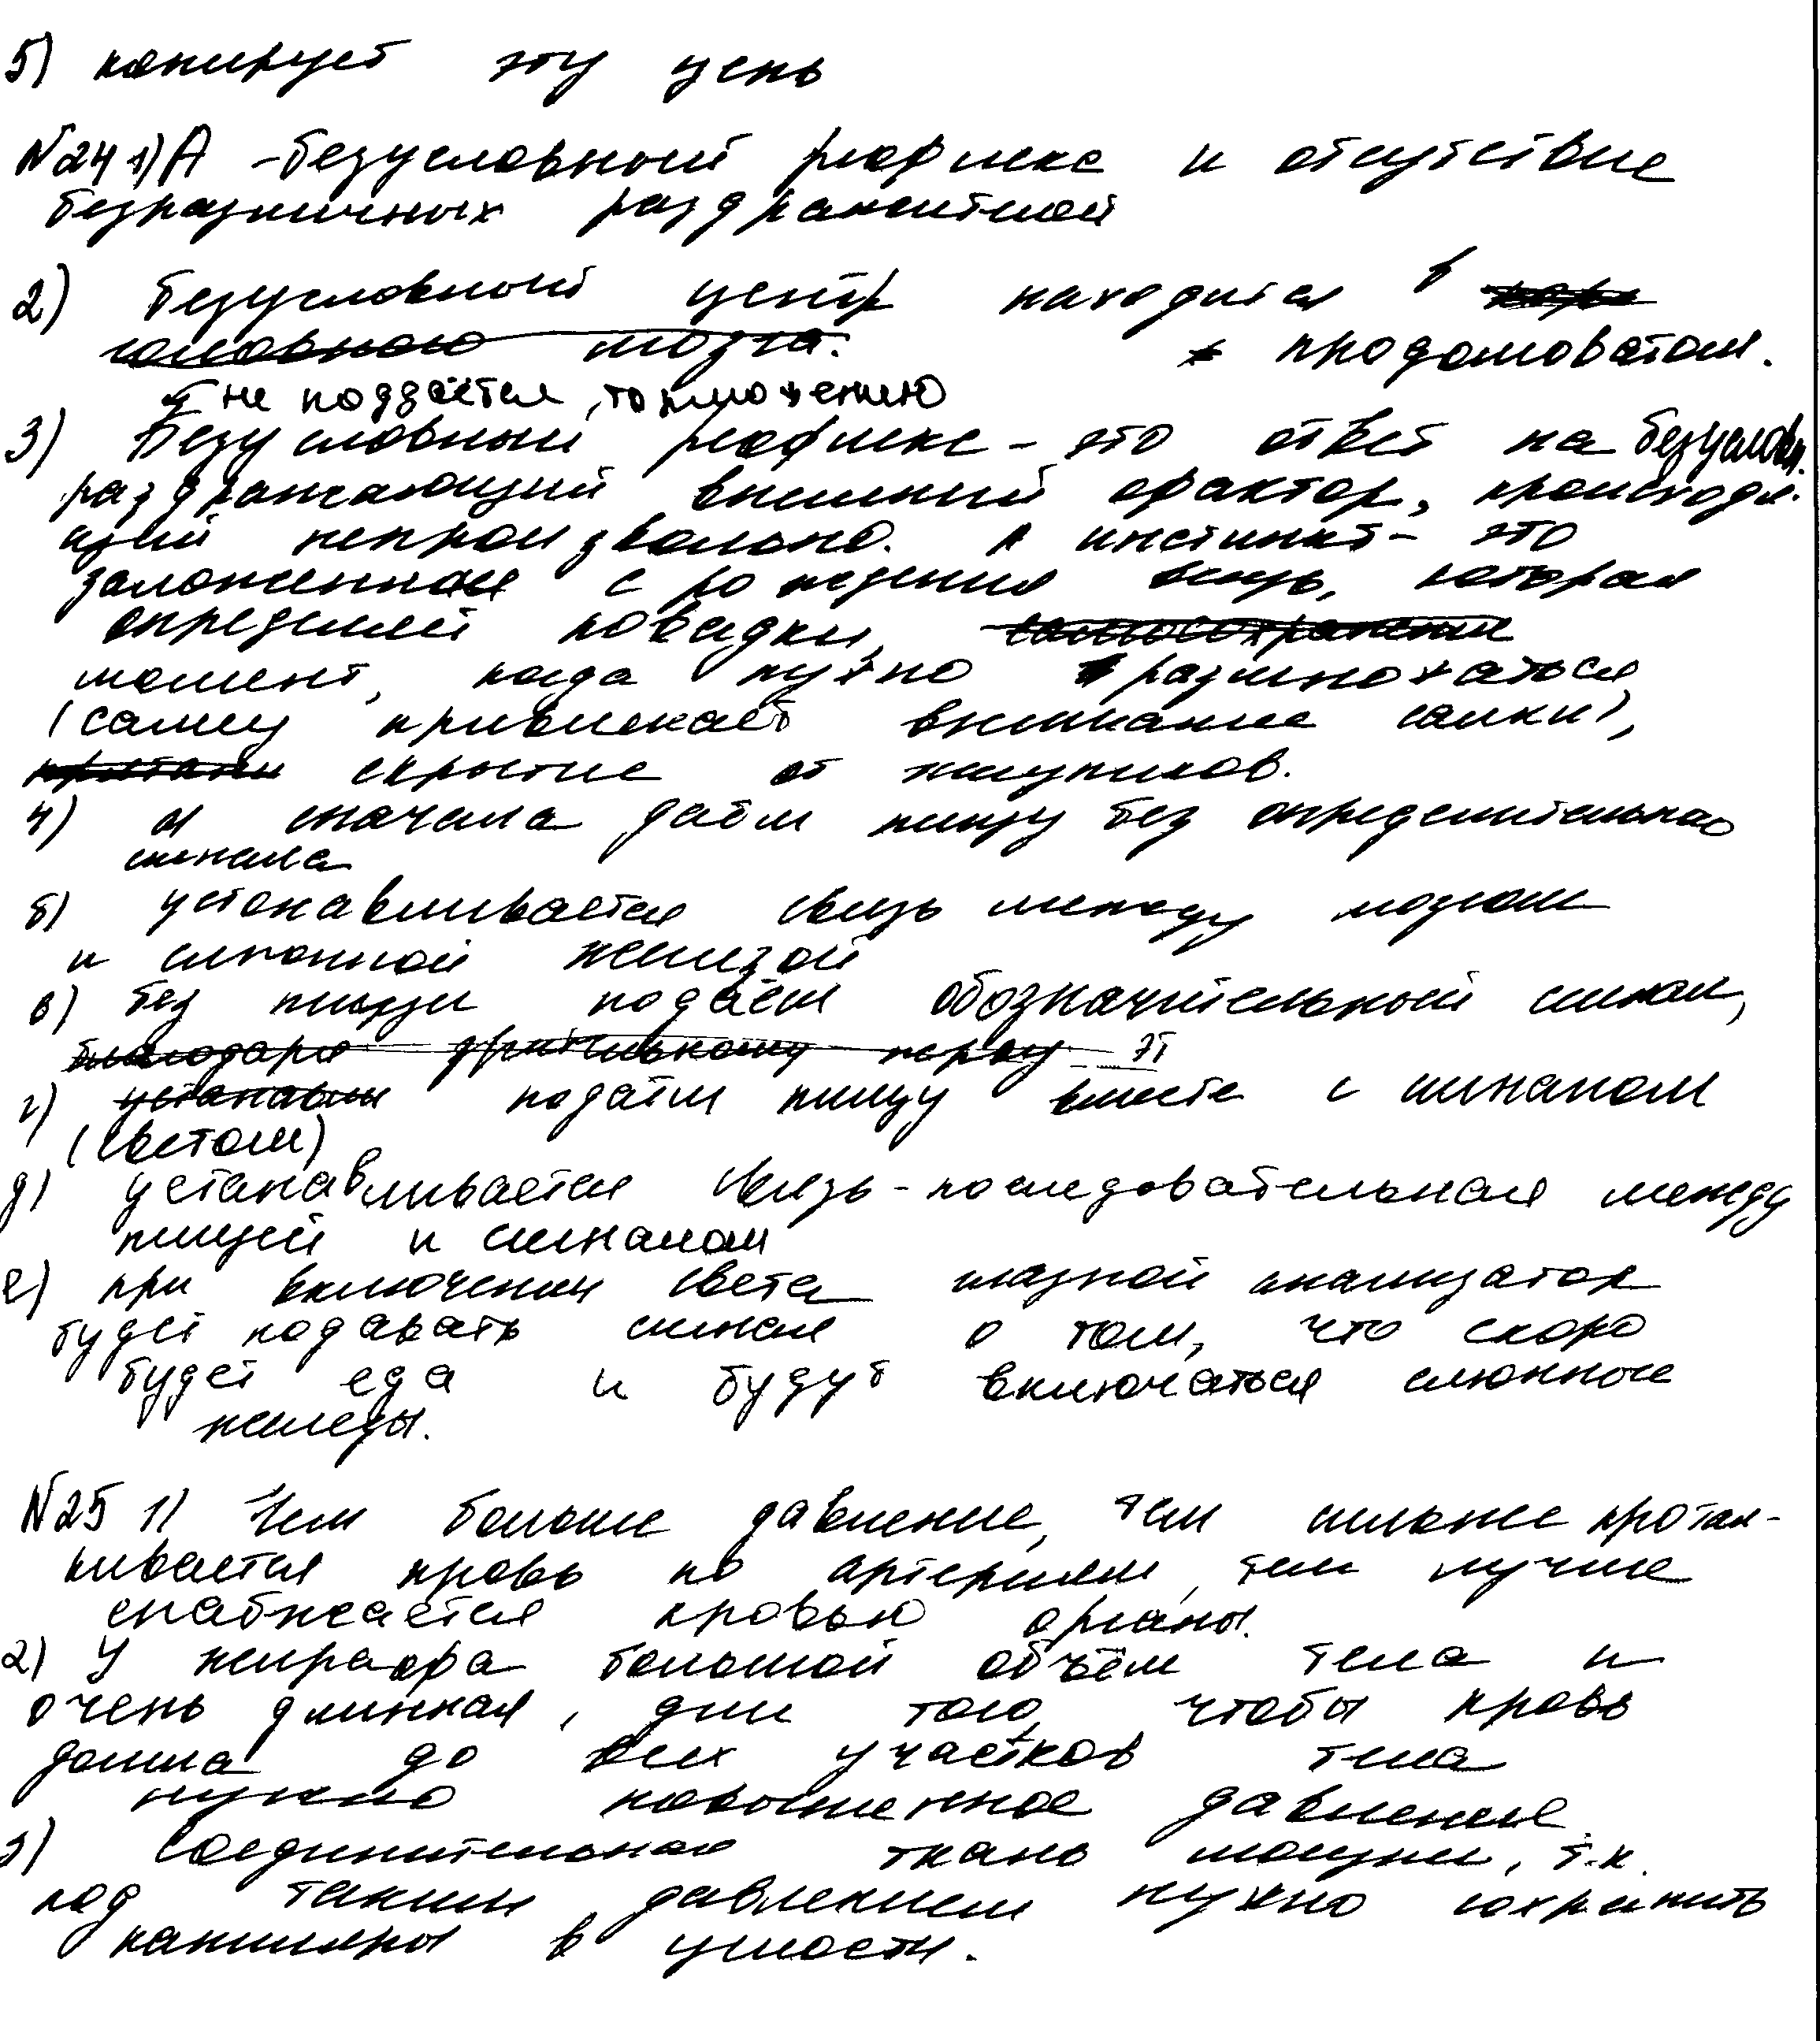 5) копирует эту цепь
№24 1) А - безусловный рефлекс и отсутствие
безразличных раздражителей
2) безусловный центр находится в
мозга. продолговатом.
не поддаётся торможению
3) Безусловный рефлекс - это ответ на безусловн.
раздражающий внешний фактор, происходя-
щий непроизвольно. А инстинкт - это
заложенная с рождения вещь, которая
определяет повадки,
момент, когда нужно размножаться
(самец привлекает внимание самки),
скрытие от хищников.
4) а сначала даём пищу без определительного
сигнала
б) устанавливается связь между мозгом
и слюнной железой
в) без пищи подаём обозначительный сигнал,
г) подаём пищу вместе с сигналом
(светом)
д) устанавливается связь - последовательная между
пищей и сигналом
е) при включении света глазной анализатор
будет подавать сигнал о том, что скоро
будет еда и будут включаться слюнные
железы.
№25 1) Чем больше давление, тем сильнее протал-
кивается кровь по артериям, тем лучше
снабжается кровью органы.
2) У жирафа большой объём тела и
очень длинная, для того, чтобы кровь
дошла до всех участков тела
нужно повышенное давление.
3) Соединительная ткань мощная, т.к.
под таким давлением нужно сохранить
капилляры в целости.